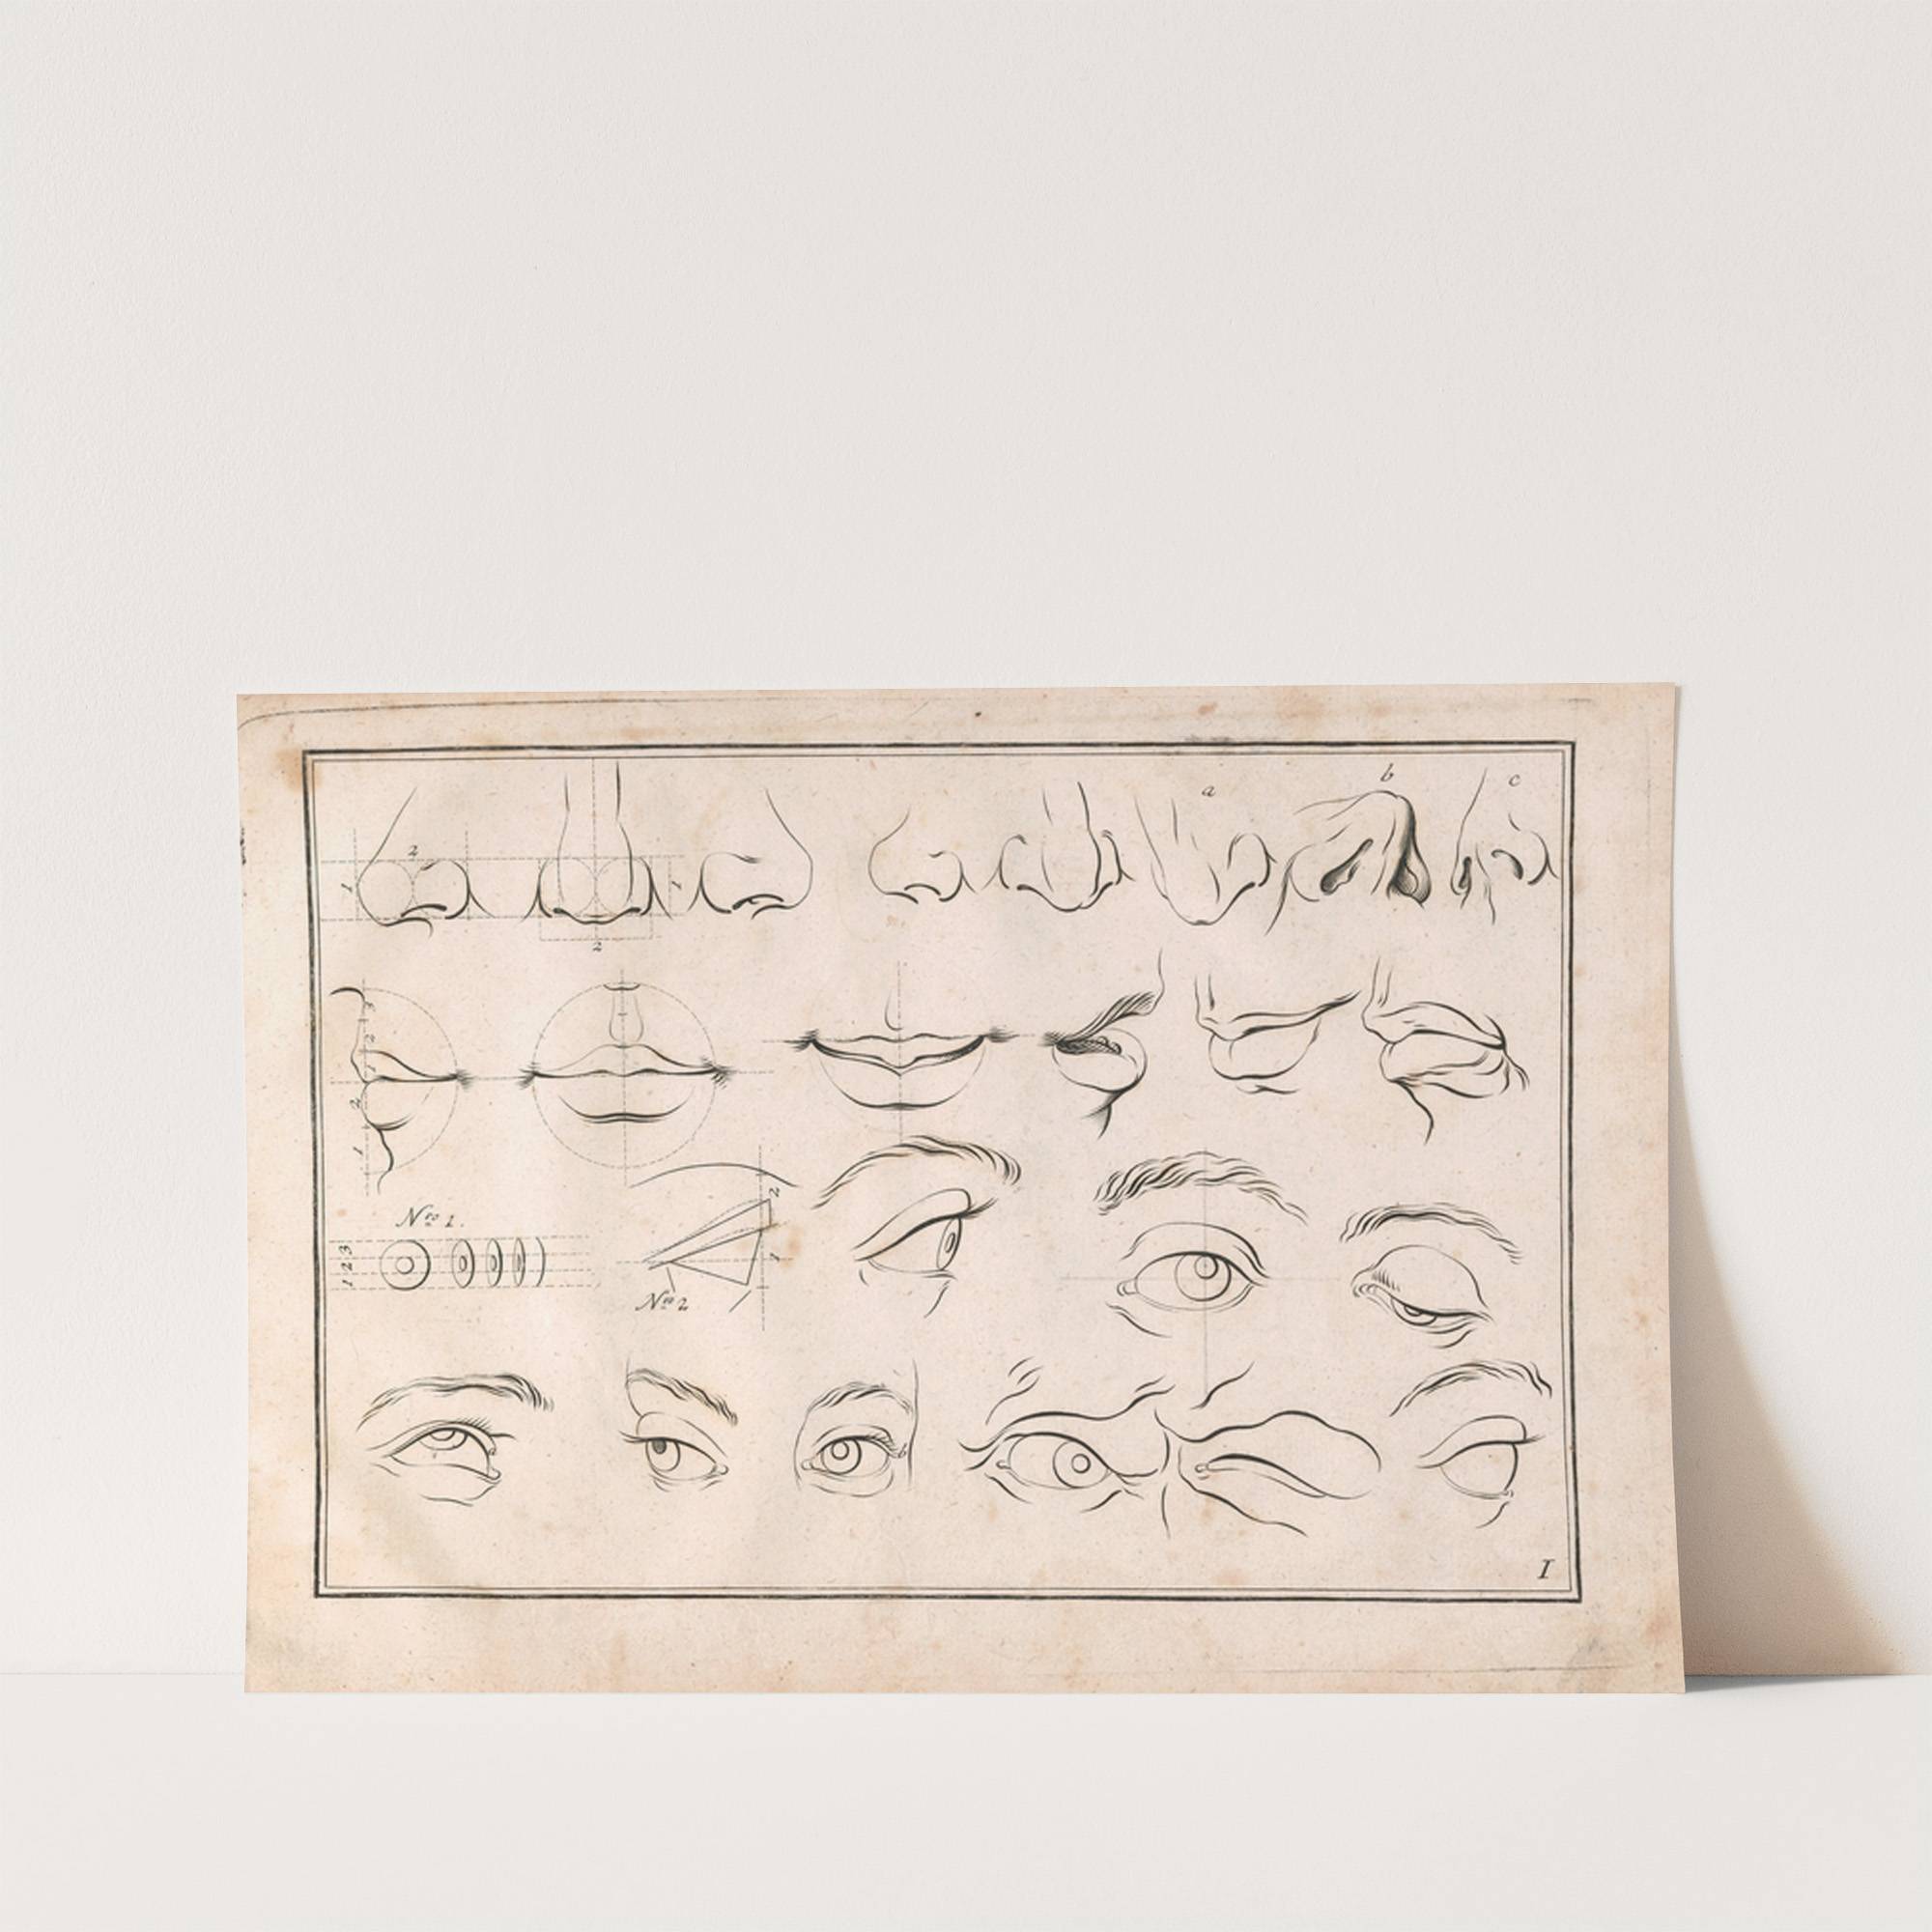 a b c
2
1 1
2
3
2
1
2
1
N.ro 1.
1 2 3
2
1
N.ro 2
a
b
I